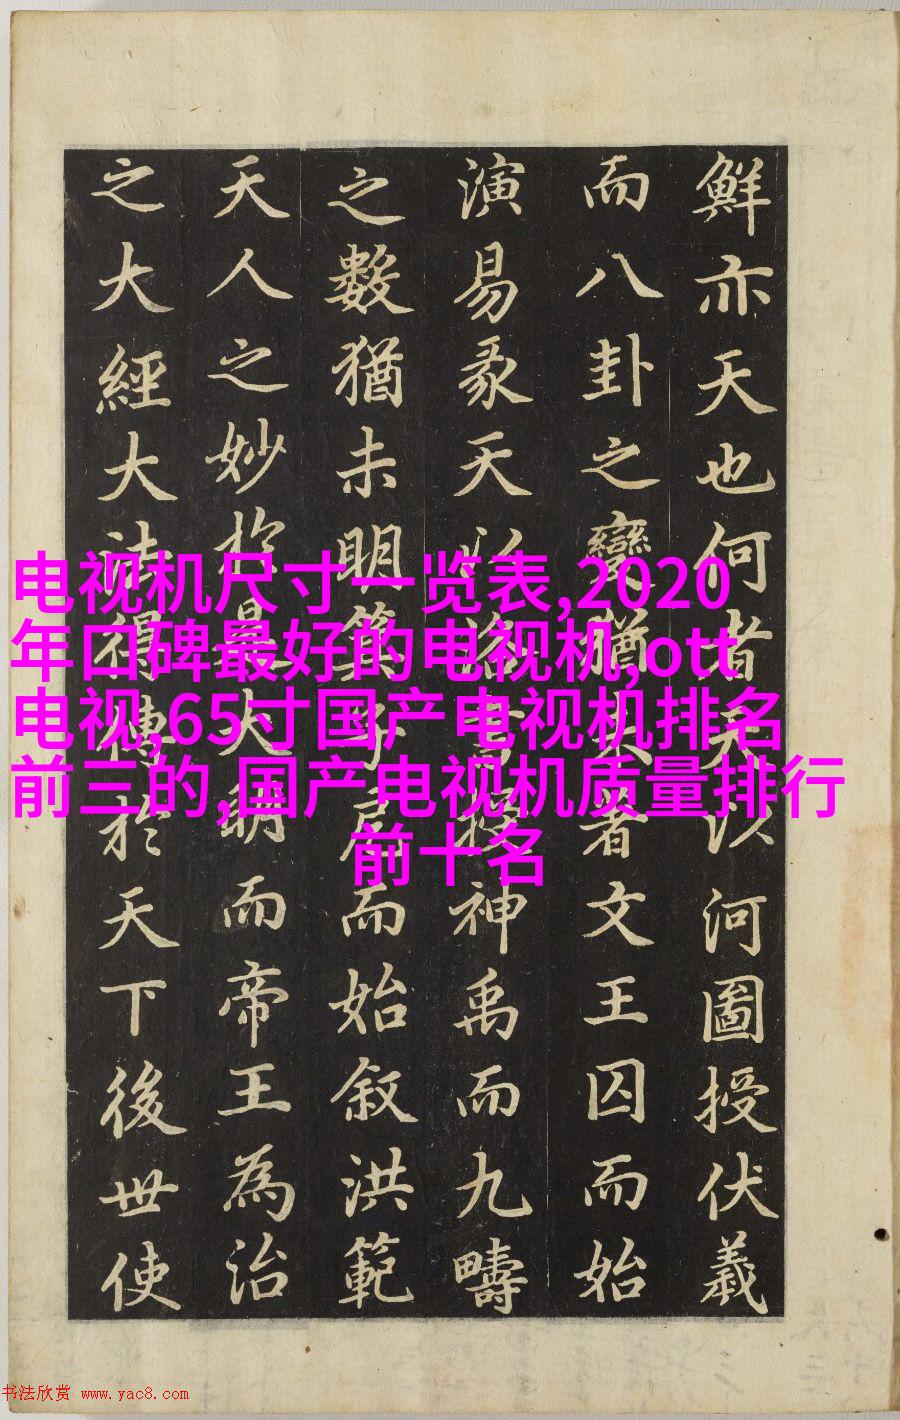 鮮亦天也何者天以河圖授伏羲
而八卦之變猶未著文王囚而始
演易彖天以洛書授神禹而九疇
之數猶未明箕子而始叙洪範
天人之妙於是大明而帝王為治
之大經大法得傳於天下後世使
电视机尺寸一览表,2020
年口碑最好的电视机,ott
电视,65寸国产电视机排名
前三的,国产电视机质量排行
前十名
书法欣赏 www.yac8.com